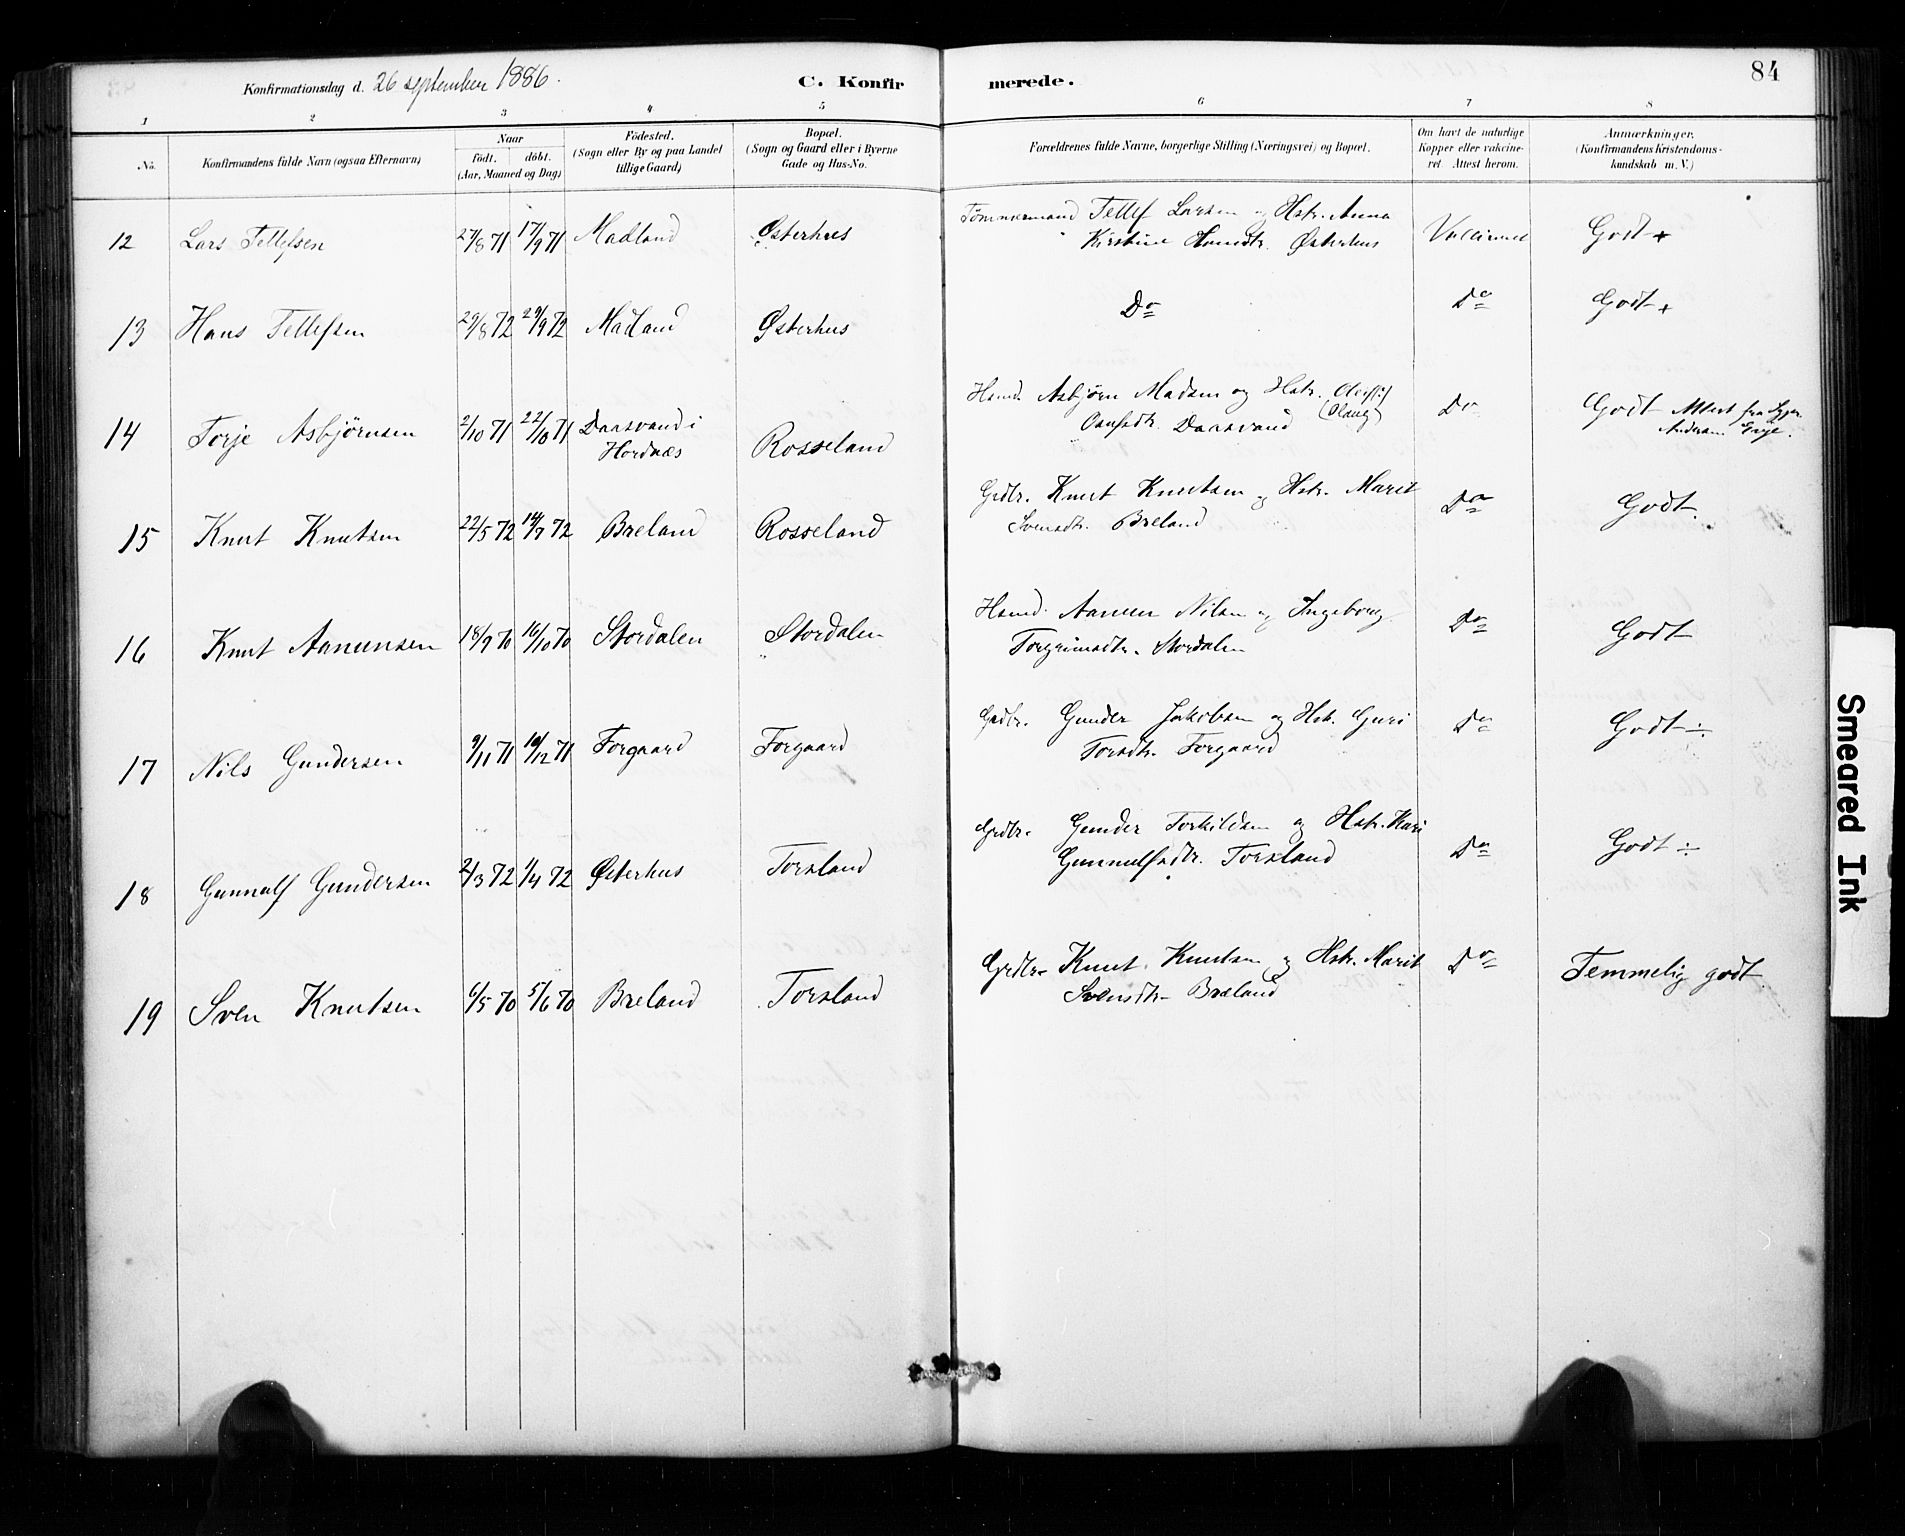 Konfirmationsdag d. 26 september 1886.
C. Konfirmerede.
84
1 2 3 4 5 6 7 8
No.
Konfirmandens fulde Navn (ogsaa Efternavn)
Naar
födt. döbt.
(Aar, Maaned og Dag)
Födested.
(Sogn eller By og paa Landet
tillige Gaard)
Bopæl.
(Sogn og Gaard eller i Byerne
Gade og Hus-No.
Forældrenes fulde Navne, borgerlige Stilling (Næringsvei) og Bopæl.
Om havt de naturlige
Kopper eller vakcine-
ret. Attest herom.
Anmærkninger.
(Konfirmandens Kristendoms-
kundskab m. V.)
12 Lars Tellefsen 27/8 71 17/9 71 Madland Østerhus Tømmermand Tellef Larsen og Hstr. Anna
Kirstine Hansdtr. Østerhus Vaccineret Godt +
13 Hans Tellefsen 29/8 72 29/9 72 Madland Østerhus Do Do Godt +
14 Torje Asbjørnsen 2/10 71 22/10 71 Daasvand i
Hordnæs Rosseland Hsmd. Asbjørn Madsen og Hstr.
(Olaug)
Daasvand Do Godt Attest fra
Andersen
15 Knut Knutsen 22/5 72 14/7 72 Breland Rosseland Grdbr. Knut Knutsen og Hstr. Marit
Svensdtr. Breland Do Godt.
16 Knut Aanensen 18/9 70 16/10 70 Stordalen Stordalen Hsmd. Aanen Nilsen og Ingeborg
Torgrimsdtr. Stordalen Do Godt
17 Nils Gundersen 9/11 71 10/12 71 Forgaard Forgaard Grdbr. Gunder Jakobsen og Hstr. Guri
Torsdtr. Forgaard Do Godt ÷
18 Gunnulf Gundersen 2/3 72 1/4 72 Østerhus Torsland Grdbr. Gunder Torkildsen og Hstr. Kari
Gunnulfsdtr. Torsland Do Godt ÷
19 Sven Knutsen 6/5 70 5/6 70 Breland Torsland Grdbr. Knut Knutsen og Hstr. Marit
Svensdtr. Breland Do Temmelig godt
Smeared Ink